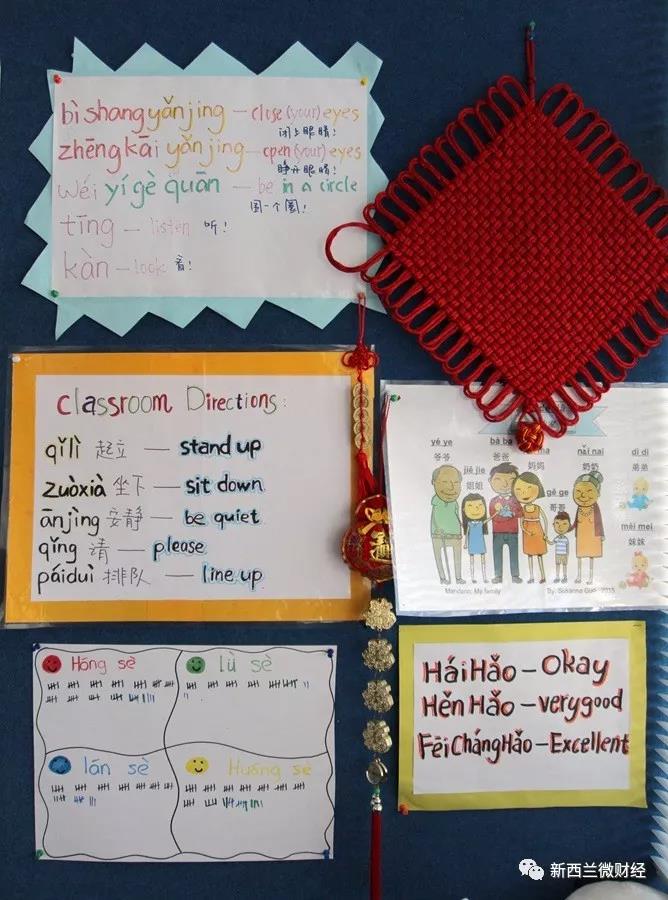 bì shang yǎn jing — close (your) eyes
闭上眼睛!
zhēng kāi yǎn jing — open (your) eyes
睁开眼睛!
wéi yí gè quān — be in a circle
围一个圈!
tīng — listen 听!
kàn — look 看!
Classroom Directions:
qǐlì 起立 — stand up
zuòxià 坐下 — sit down
ānjìng 安静 — be quiet
qǐng 请 — please
páiduì 排队 — line up
yé ye
爷爷
bà ba
爸爸
ma
妈妈
nǎi nai
奶奶
dì di
弟弟
jiě jie
姐姐
gē ge
哥哥
mèi mei
妹妹
Mandarin: My family
By: Susanna Guo 2015
Hóng sè
lǜ sè
lán sè
Huáng sè
Hái Hǎo – Okay
Hěn Hǎo – very good
Fēi Cháng Hǎo – Excellent
新西兰微财经